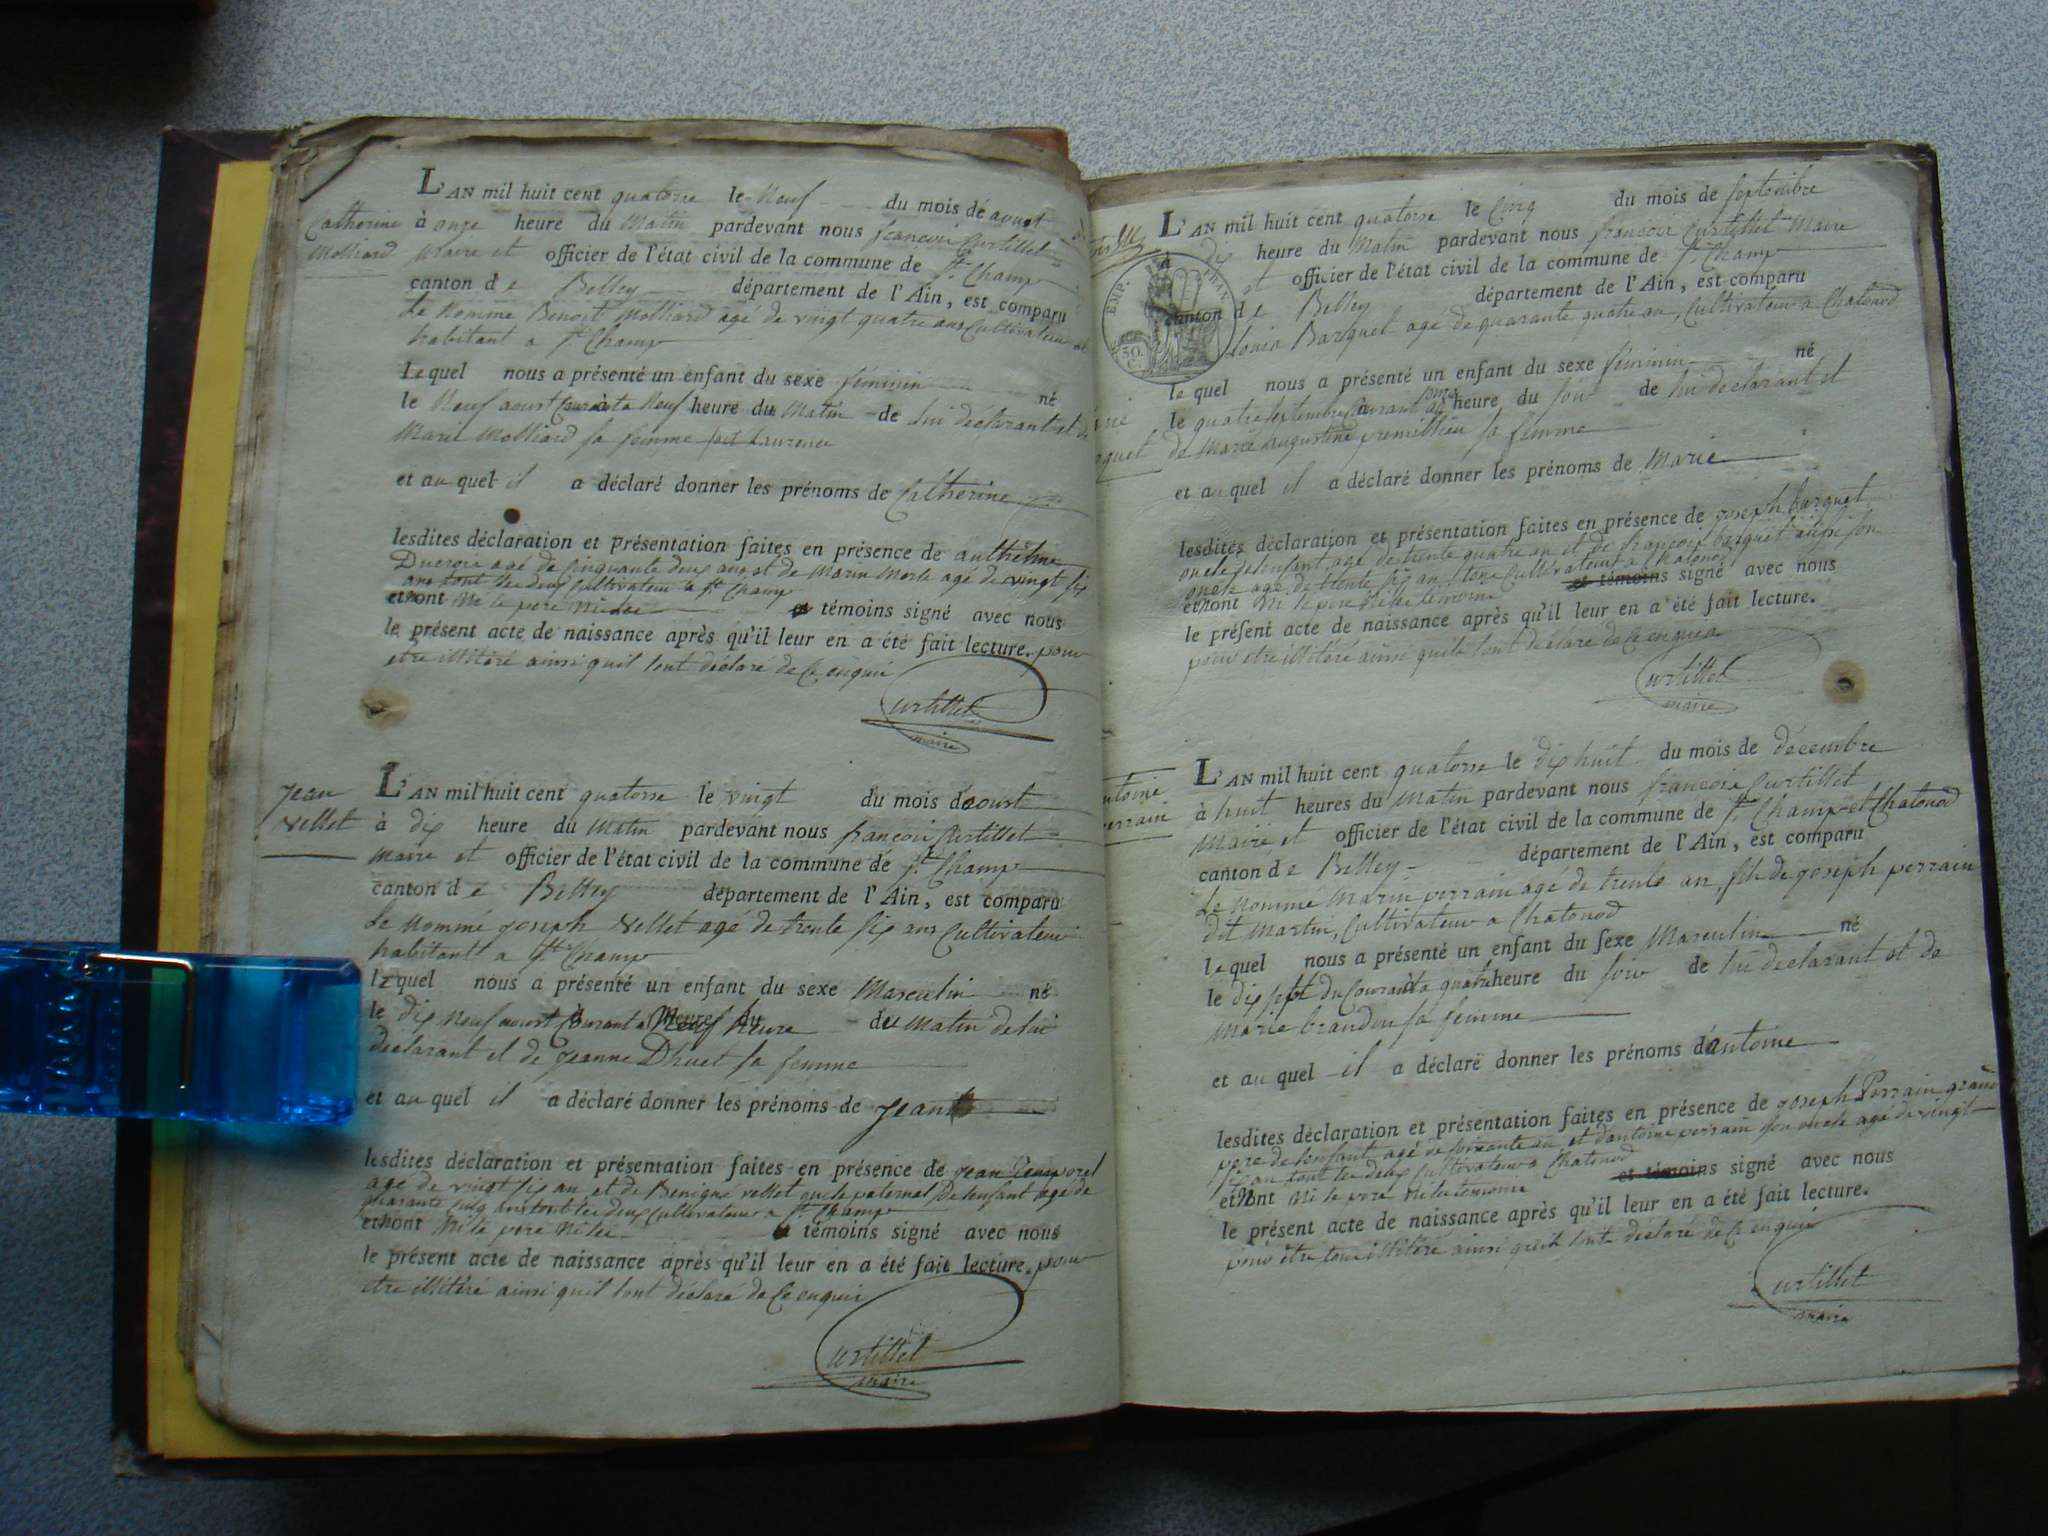 Catherine
Molliard
L'AN mil huit cent quatorse le Neuf du mois de aoust
à onze heure du Matin pardevant nous françois Curtillet
Maire et officier de l'état civil de la commune de St. Champ
canton de Belley département de l'Ain, est comparu
Le Nommé Benoit Molliard agé de vingt quatre ans Cultivateur
habitant a St. Champ
Lequel nous a présenté un enfant du sexe féminin né
le Neuf aoust Courant a Neuf heure du Matin de lui déclarant et de
Marie Molliard sa femme
et au quel il a déclaré donner les prénoms de Catherine
lesdites déclaration et présentation faites en présence de anthelme
agé de Cinquante deux ans et de Marin Merle agé de vingt six
ans tout les deux Cultivateur a St. Champ
et n'ont Ni le pere Ni les témoins signé avec nous
le présent acte de naissance après qu'il leur en a été fait lecture. pour
etre illitéré ainsi quil lont déclaré de Ce enquis
Curtillet
maire
Jean
Vellet
L'AN mil huit cent quatorse le vingt du mois d'aoust
à dix heure du Matin pardevant nous françois Curtillet
Maire et officier de l'état civil de la commune de St. Champ
canton de Belley département de l'Ain, est comparu
Le Nommé joseph Vellet agé de trente six ans Cultivateur
habitant a St. Champ
Lequel nous a présenté un enfant du sexe Masculin né
le dix Neuf aoust Courant a Neuf heure du Matin de lui
declarant et de jeanne Dhuet sa femme
et au quel il a déclaré donner les prénoms de jean
lesdites déclaration et présentation faites en présence de jean
age de vingt six an et de Benigne vellet oncle paternel De lenfant agé de
quarante Cinq ans tout les deux Cultivateur a St. Champ
et n'ont Ni le pere Ni les témoins signé avec nous
le présent acte de naissance après qu'il leur en a été fait lecture. pour
etre illitéré ainsi quil lont déclaré de Ce enquis
Curtillet
maire
EMP. FRAN.
50
C.
L'AN mil huit cent quatorse le Cinq du mois de septembre
à dix heure du Matin pardevant nous françois Curtillet Maire
et officier de l'état civil de la commune de St. Champ
canton de Belley département de l'Ain, est comparu
louis Barquet agé de quarante quatre an, Cultivateur a Chatonod
lequel nous a présenté un enfant du sexe féminin né
le quatre septembre Courant a onze heure du soir de lui declarant et
de Marie augustine premillieu sa femme
et au quel il a déclaré donner les prénoms de Marie
lesdites déclaration et présentation faites en présence de joseph barquet
oncle de lenfant, agé de trente quatre an et de françois barquet aussi son
oncle agé de trente six an, tous Cultivateur a Chatonod
et n'ont Ni le pere Ni les temoins et témoins signé avec nous
le présent acte de naissance après qu'il leur en a été fait lecture.
pour etre illitéré ainsi quils lont déclaré de Ce enquis
Curtillet
maire
L'AN mil huit cent quatorse le dix huit du mois de décembre
à huit heures du Matin pardevant nous françois Curtillet
Maire et officier de l'état civil de la commune de St. Champ et Chatonod
canton de Belley département de l'Ain, est comparu
Le Nommé Marin perrain agé de trente an, fils de joseph perrain
dit Martin, Cultivateur a Chatonod
lequel nous a présenté un enfant du sexe Masculin né
le dix sept du Courant a quatre heure du soir de lui declarant et de
Marie brandon sa femme
et au quel il a déclaré donner les prénoms d'antoine
lesdites déclaration et présentation faites en présence de joseph Perrain grand
pere de lenfant agé de soixante an et d'antoine perrain son oncle agé de vingt
six an tout les deux Cultivateur a Chatonod
et n'ont Ni le pere Ni les temoins et témoins signé avec nous
le présent acte de naissance après qu'il leur en a été fait lecture.
pour être tous illitéré ainsi quils lont déclaré de Ce enquis
Curtillet
maire